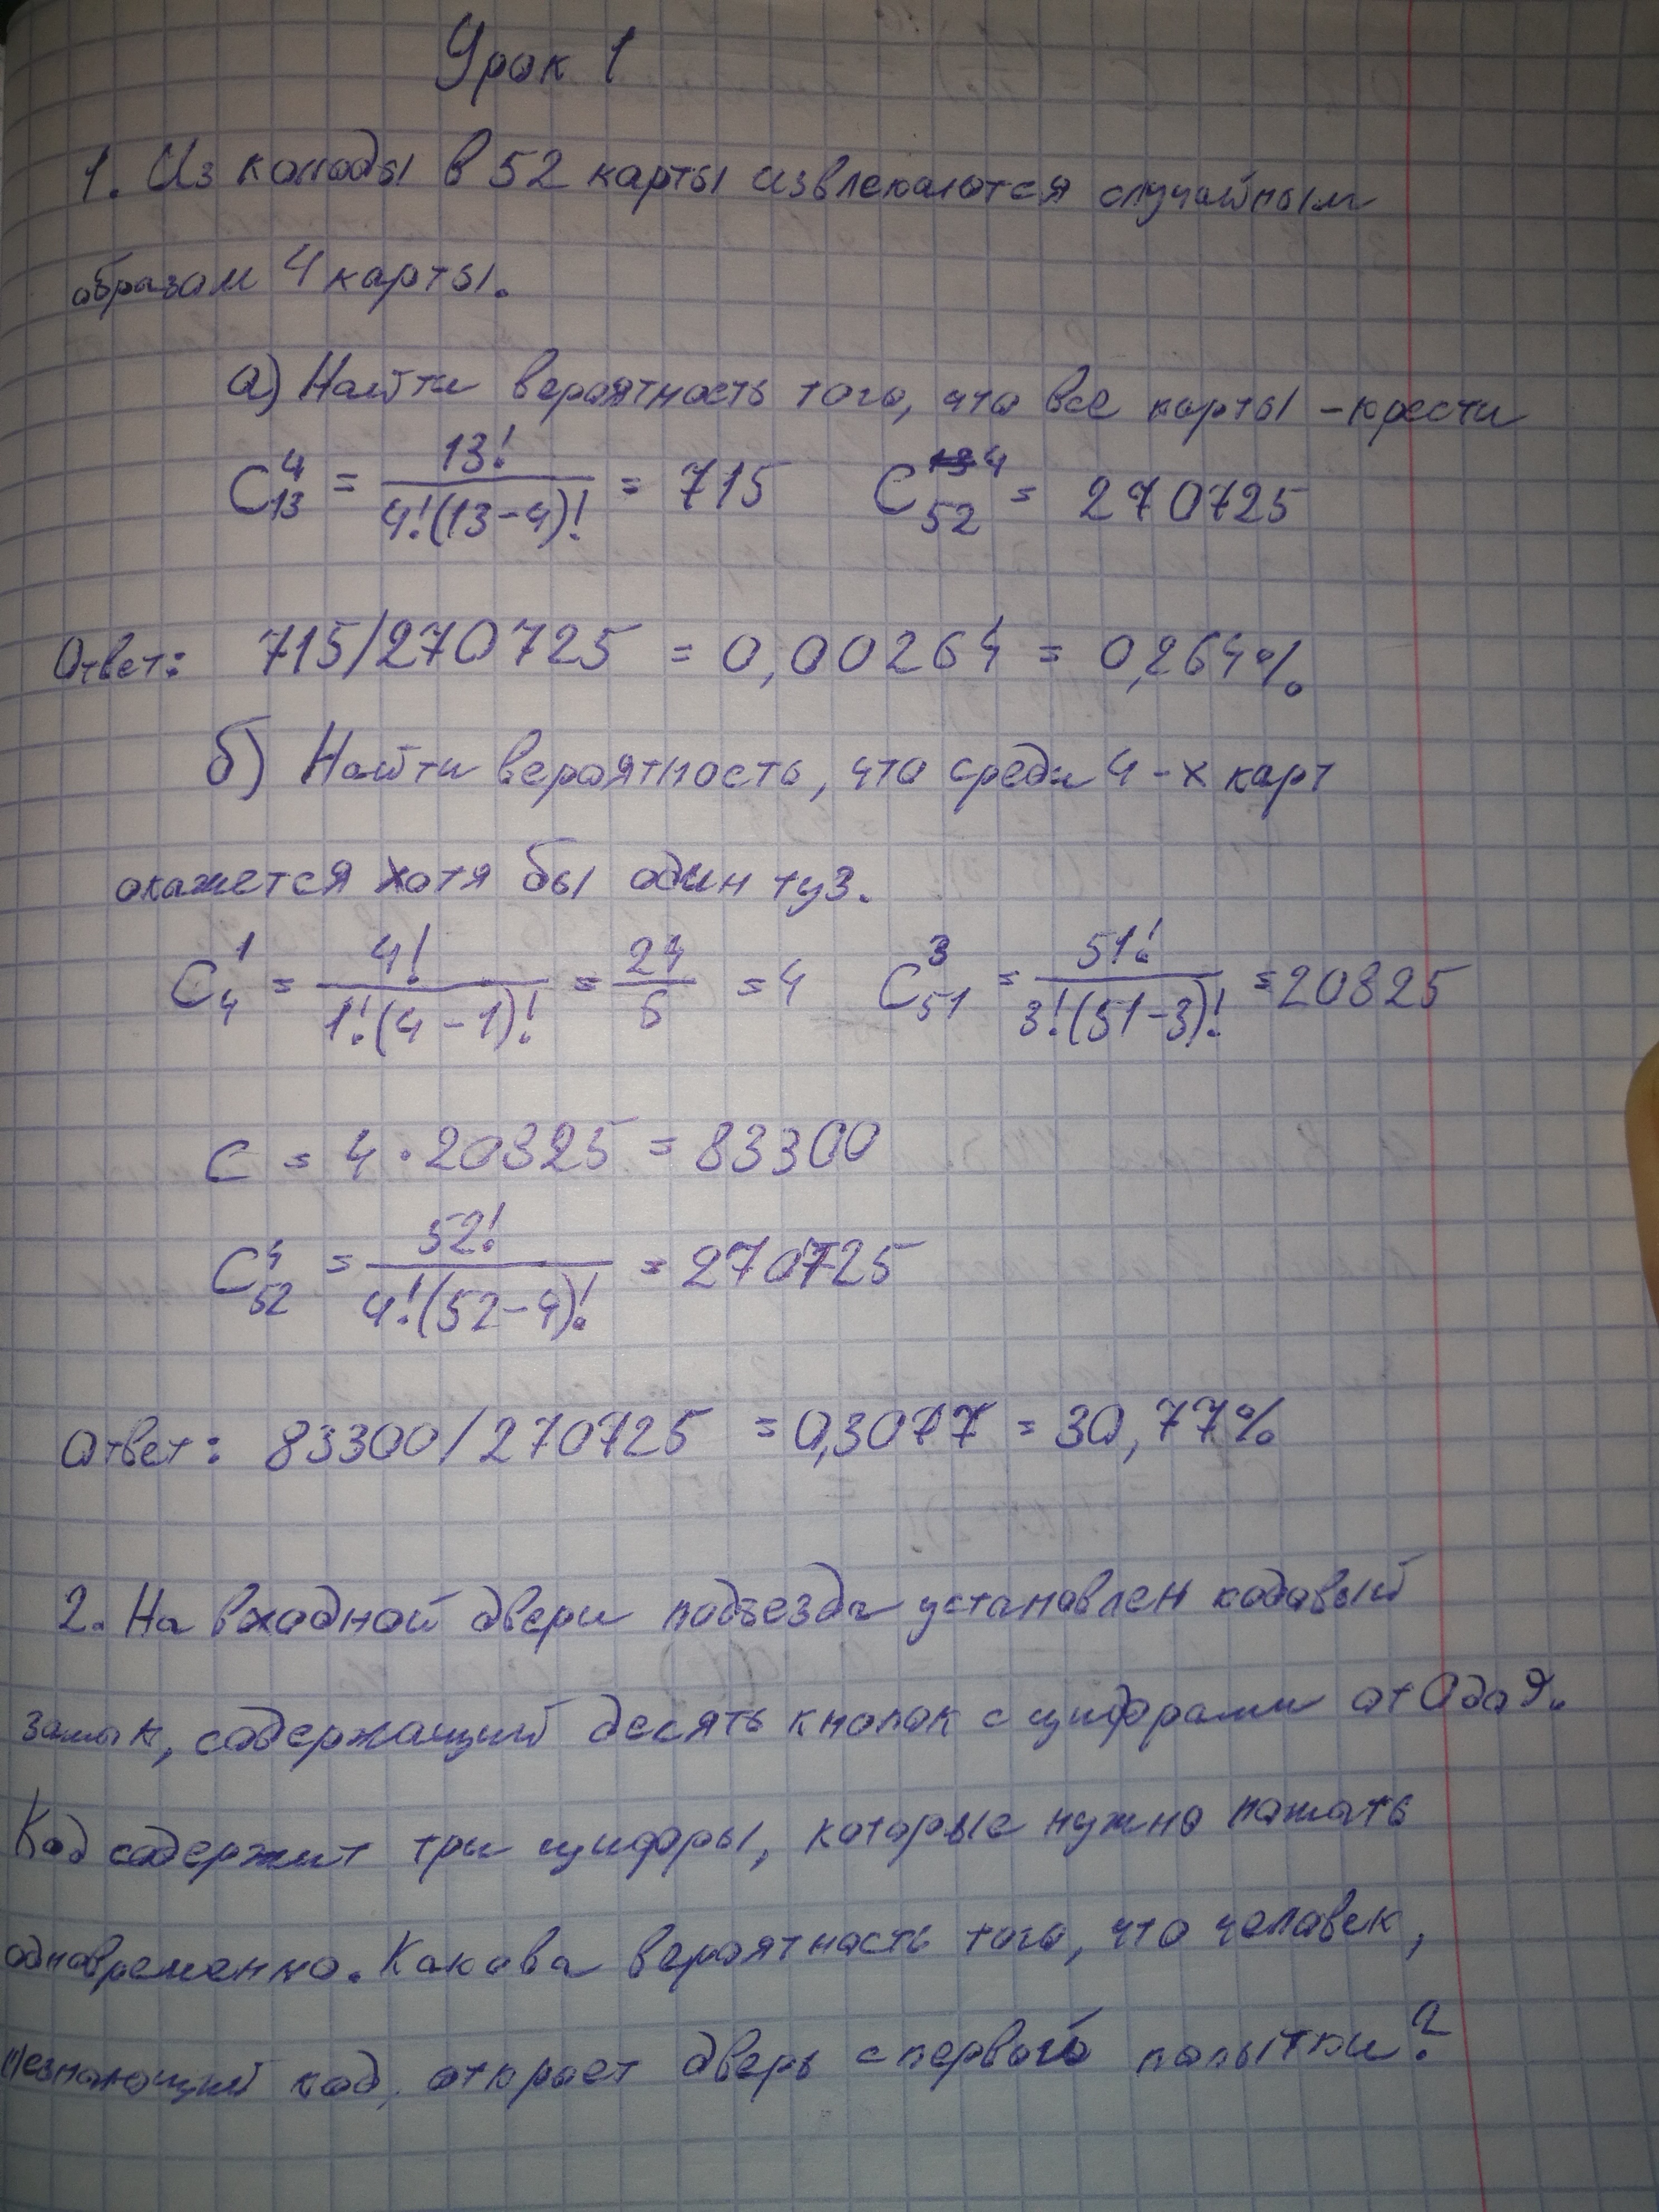 Урок 1
1. Из колоды в 52 карты извлекаются случайным
образом 4 карты.
а) Найти вероятность того, что все карты – крести
C₁₃⁴ = 13! / 4!(13-4)! = 715 C₅₂⁴ = 270725
Ответ: 715/270725 = 0,00264 = 0,264%
б) Найти вероятность, что среди 4-х карт
окажется хотя бы один туз.
C₄¹ = 4! / 1!(4-1)! = 24/6 = 4 C₅₁³ = 51! / 3!(51-3)! = 20825
C = 4 · 20825 = 83300
C₅₂⁴ = 52! / 4!(52-4)! = 270725
Ответ: 83300/270725 = 0,3077 = 30,77%
2. На входной двери подъезда установлен кодовый
замок, содержащий десять кнопок с цифрами от 0 до 9.
Код содержит три цифры, которые нужно нажать
одновременно. Какова вероятность того, что человек,
незнающий код, откроет дверь с первой попытки?